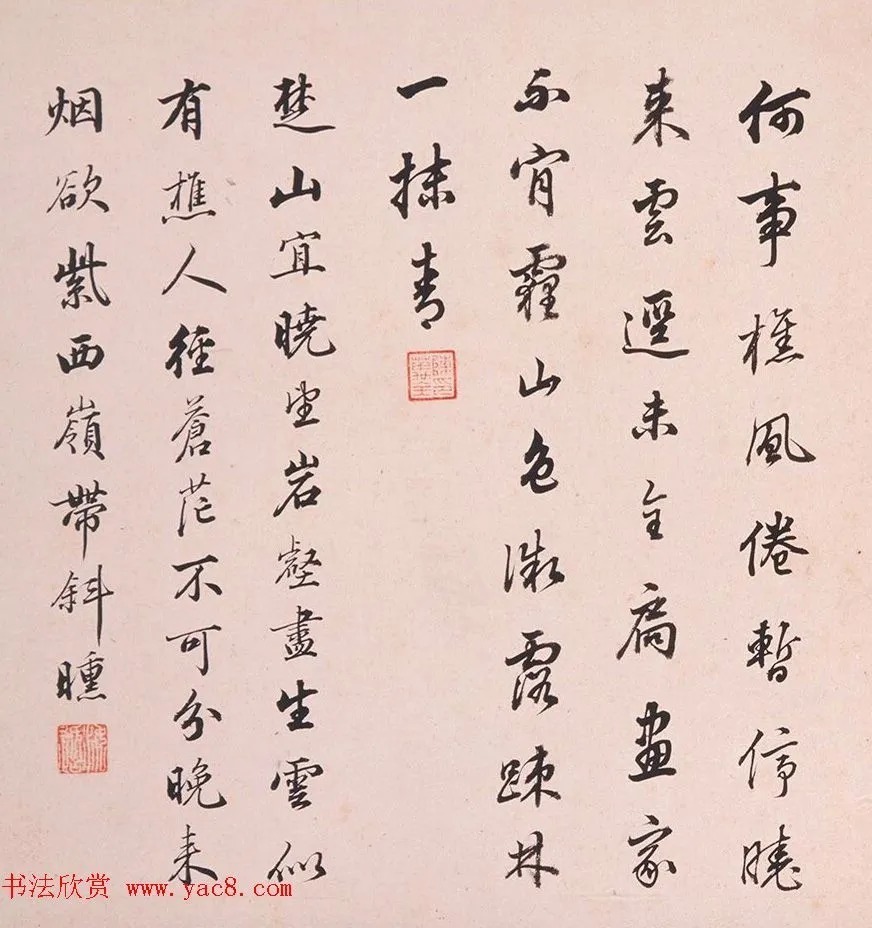 何事樵風倦暫停曉
来雲逕未全扃畫家
不肎霾山色微露疎林
一抹青
楚山宜曉望岩壑盡生雲似
有樵人徑蒼茫不可分晚来
烟欲紫西嶺帶斜曛
书法欣赏 www.yac8.com